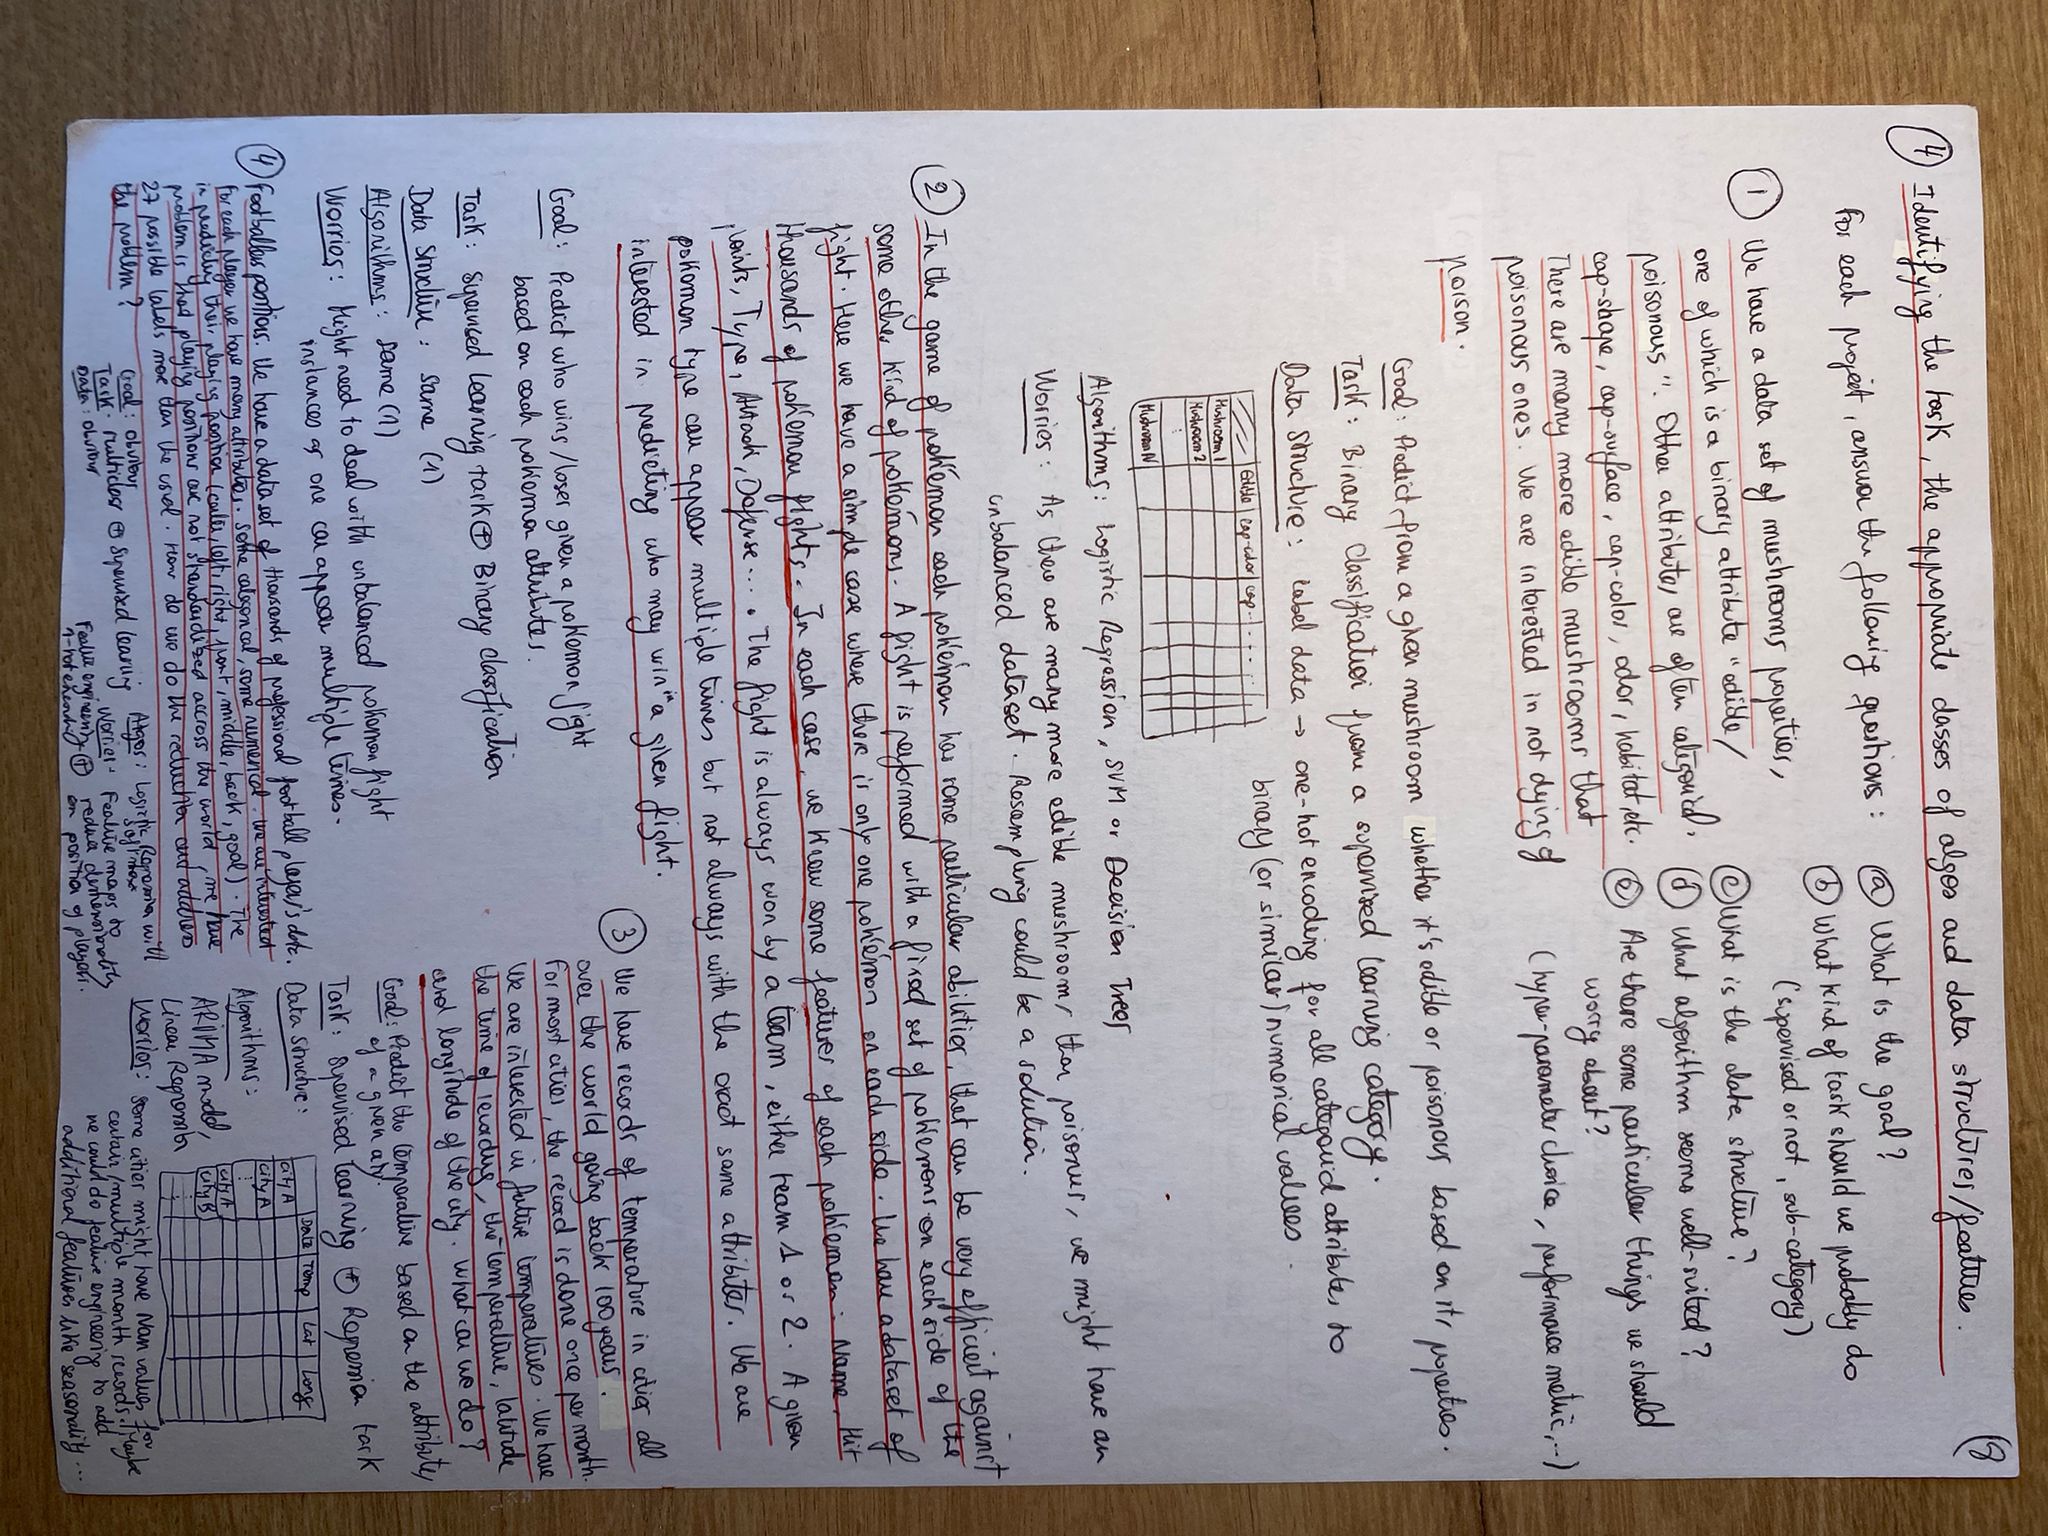 8
4 Identifying the task, the appropriate classes of algos and data structures/features.
For each project, answer the following questions :
a What is the goal?
b What kind of task should we probably do
(supervised or not, sub-category)
c What is the data structure?
d What algorithm seems well-suited?
e Are there some particular things we should
worry about?
(hyper-parameter choice, performance metric,...)
1 We have a data set of mushrooms properties,
one of which is a binary attribute "edible/
poisonous". Other attributes are often categorical.
cap-shape, cap-surface, cap-color, odor, habitat, etc.
There are many more edible mushrooms that
poisonous ones. We are interested in not dying of
poison.
Goal: Predict from a given mushroom whether it's edible or poisonous based on its properties.
Task: Binary Classification from a supervised learning category.
Data Structure: Label data → one-hot encoding for all categorical attributes to
binary (or similar) numerical values.
Edible Cap-color Cap...
Mushroom 1
Mushroom 2
Mushroom N
Algorithms: Logistic Regression, SVM or Decision Trees
Worries: As there are many more edible mushrooms than poisonus, we might have an
unbalanced dataset. Resampling could be a solution.
2 In the game of pokémon each pokémon has some particular abilities, that can be very efficient against
some other kind of pokémons. A fight is performed with a fixed set of pokémons on each side of the
fight. Here we have a simple case where there is only one pokémon on each side. We have a dataset of
thousands of pokémon fights. In each case, we know some features of each pokémon: Name, Hit
points, Type, Attack, Defense.... The fight is always won by a team, either team 1 or 2. A given
pokemon type can appear multiple times but not always with the exact same attributes. We are
interested in predicting who may win in a given fight.
Goal: Predict who wins/loses given a pokemon fight
based on each pokemon attributes.
Task: Supervised learning task ⊕ Binary classification
Data Structure: same (1)
Algorithms: same (1)
Worries: Might need to deal with unbalanced pokemon fight
instances as one can appear multiple times.
3 We have records of temperature in cities all
over the world going back 100 years.
For most cities, the record is done once per month.
We are interested in future temperatures. We have
the time of recording, the temperature, latitude
and longitude of the city. What can we do?
Goal: Predict the temperature based on the attributes
of a given city.
Task: Supervised learning ⊕ Regression task
Data structure:
Date Temp Lat Long
city A
city A
city A
city B
Algorithms:
ARIMA model,
Linear Regression
Worries: Some cities might have NaN values for
certain/multiple month records. Maybe
we could do feature engineering to add
additional features like seasonality...
4 Footballers positions. We have a data set of thousands of professional football players's data.
For each player we have many attributes. Some categorical, some numerical. We are interested
in predicting their playing position (center, left, right, front, middle, back, goal). The
problem is that playing positions are not standardized accross the world, we have
27 possible labels more than the usual. How do we do the reduction and address
the problem?
Goal: obvious
Task: Multiclass ⊕ Supervised learning
Data: obvious
Algos: Logistic Regression with
softmax
Worries: Feature maps to
reduce dimensionality
on position of players.
Feature engineering ⊕
1-hot encoding